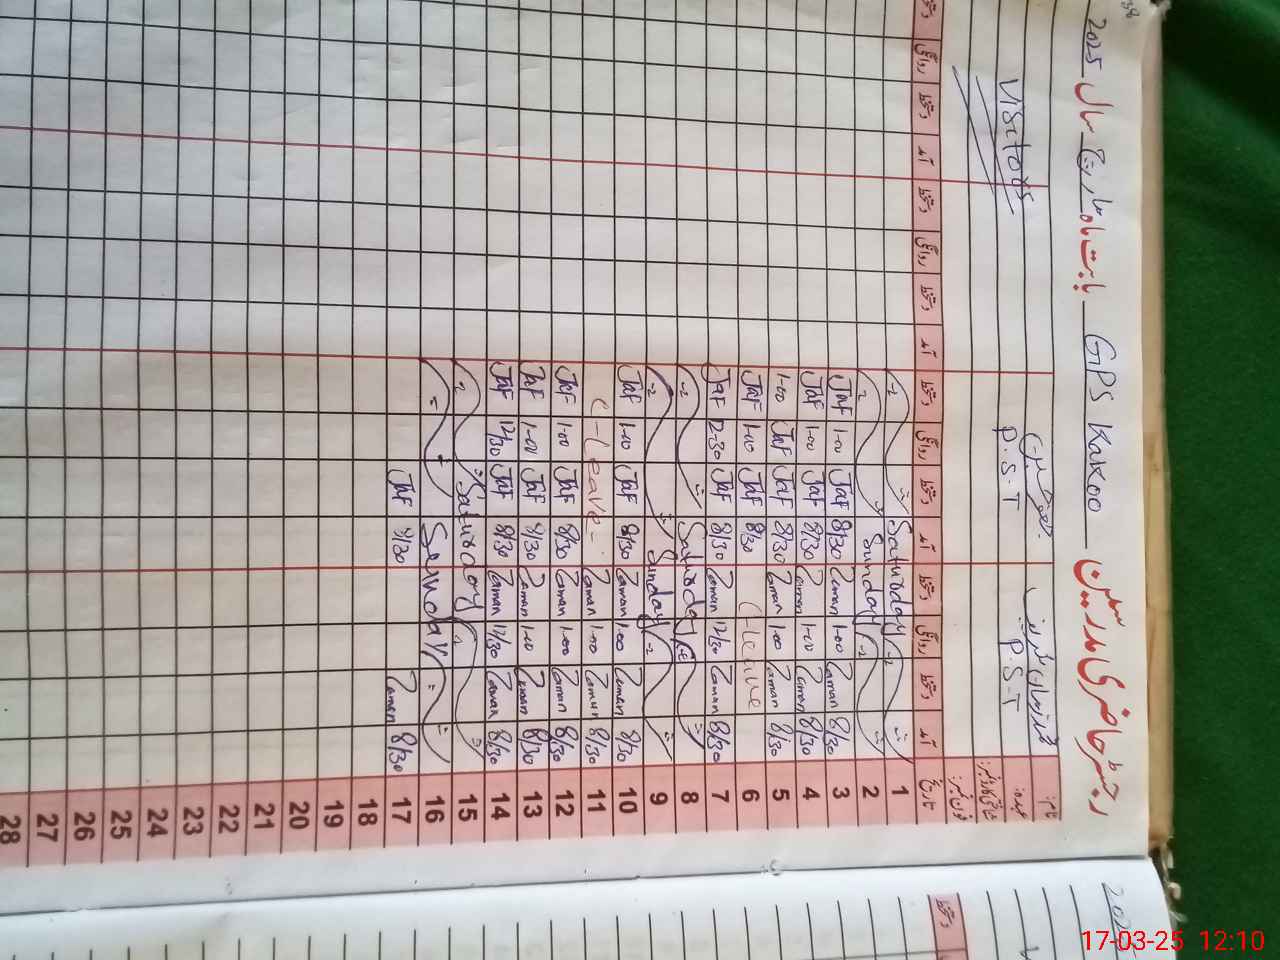 رجسٹر حاضری مدرسین GPS Kakoo بابت ماہ مارچ سال 2025
نام:
عہدہ: P.S.T P.S.T Visitors
شناختی کارڈ نمبر:
فون نمبر:
تاریخ آمد دستخط روانگی دستخط آمد دستخط روانگی دستخط آمد دستخط روانگی دستخط آمد دستخط روانگی دستخط
1 Saturday
2 Sunday
3 8/30 Zaman 1-00 Zaman 8/30 Jaf 1-00 Jaf
4 8/30 Zaman 1-00 Zaman 8/30 Jaf 1-00 Jaf
5 8/30 Zaman 1-00 Zaman 8/30 Jaf Jaf 1-00
6 C-leave 8/30 Jaf 1-00 Jaf
7 8/30 Zaman 12/30 Zaman 8/30 Jaf 12-30 Jaf
8 Saturday
9 Sunday
10 8/30 Zaman 1-00 Zaman 8/30 Jaf 1-00 Jaf
11 8/30 Zaman 1-00 Zaman C-leave-
12 8/30 Zaman 1-00 Zaman 8/30 Jaf 1-00 Jaf
13 8/30 Zaman 1-00 Zaman 8/30 Jaf 1-00 Jaf
14 8/30 Zaman 12/30 Zaman 8/30 Jaf 12/30 Jaf
15 Saturday
16 Sunday
17 8/30 Zaman 8/30 Jaf
18
19
20
21
22
23
24
25
26
27
28
17-03-25 12:10